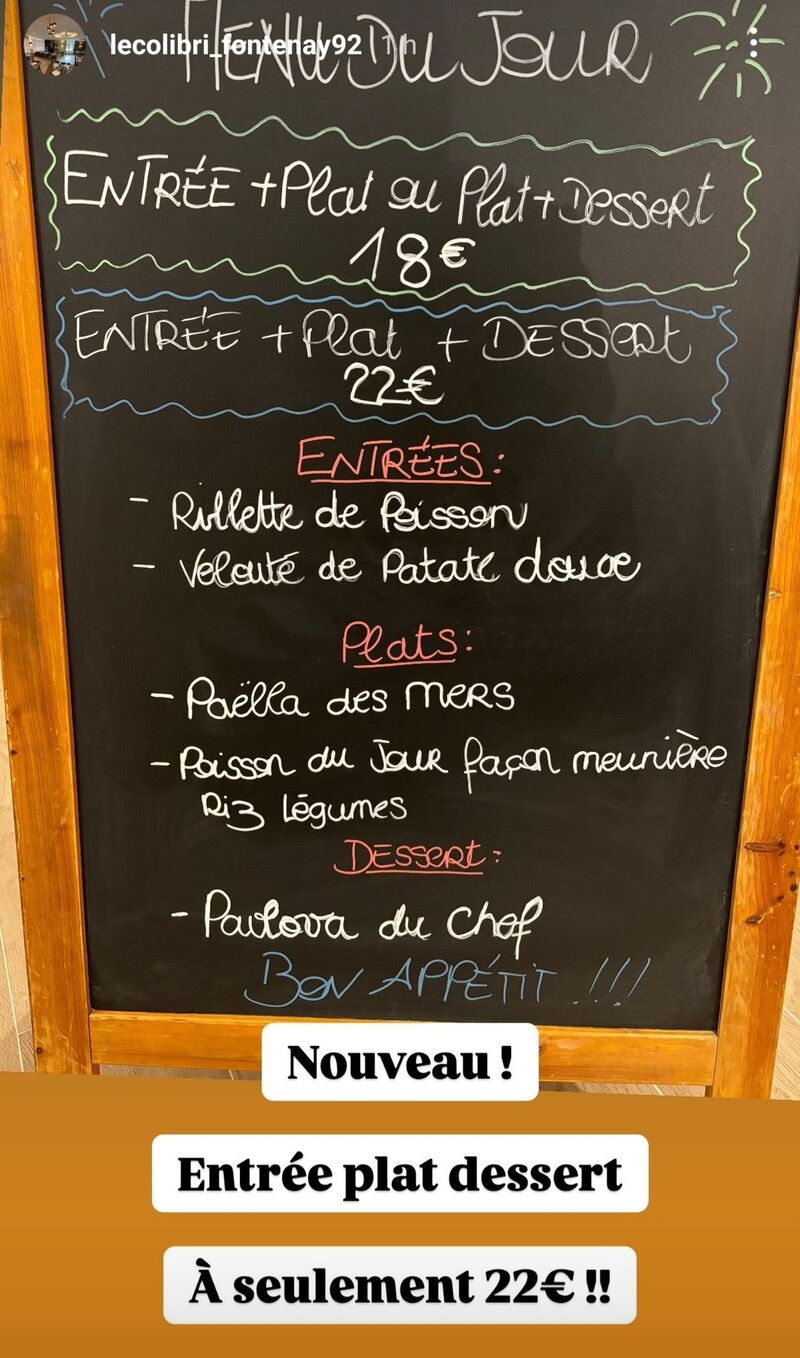 lecolibri_fontenay92 1 h
MENU DU JOUR
ENTRÉE + Plat ou Plat + Dessert
18€
ENTRÉE + Plat + DESSERT
22€
ENTRÉES :
- Rillette de Poisson
- Velouté de Patate douce
Plats :
- Paëlla des MERS
- Poisson du Jour façon meunière
Riz Légumes
DESSERT :
- Pavlova du Chef
BON APPÉTIT !!!
Nouveau !
Entrée plat dessert
À seulement 22€ !!